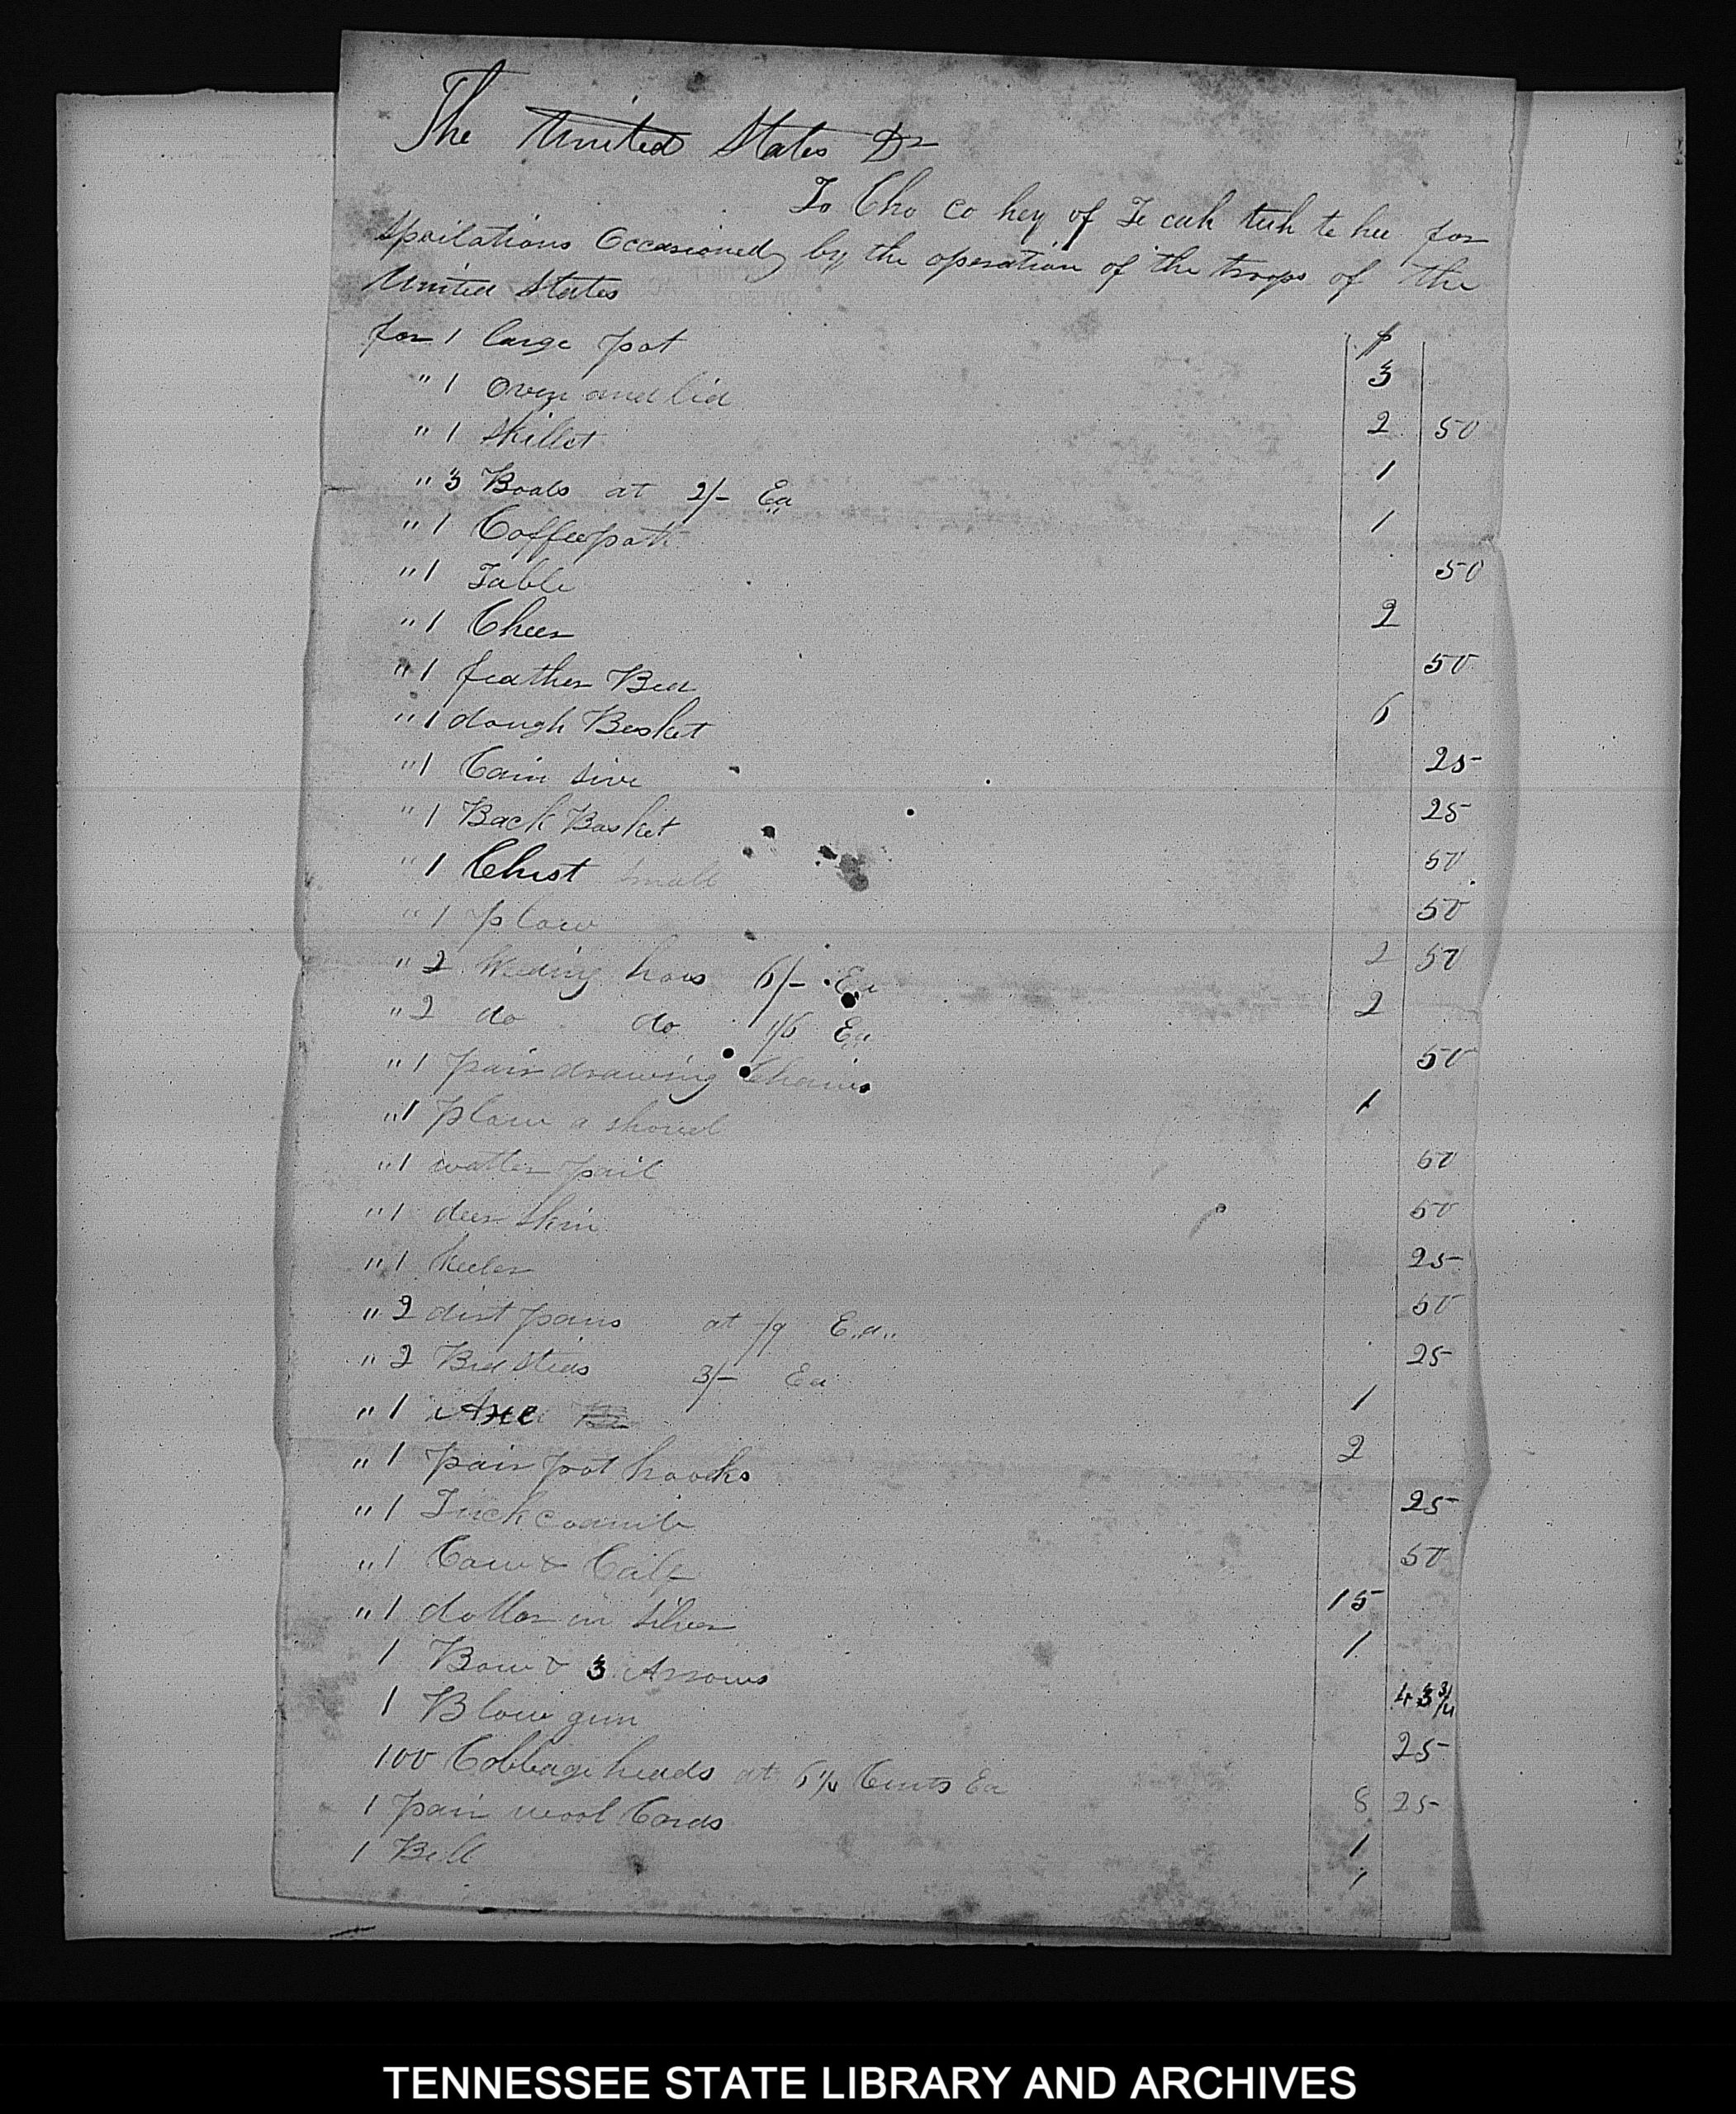 The United States Dr
To Cho co hey of Te cah tuh te hee for
Spoilations Occasioned by the operation of the troops of the
United States
$
for 1 large pot 3
" 1 oven and lid 2 50
" 1 Skillet 1
" 3 Boals at 2/- Ea 1
" 1 Coffeepott 50
" 1 Table 2
" 1 Cheer 50
" 1 feather Bed 6
" 1 dough Basket 25
" 1 Cain sive 25
" 1 Back Basket 50
" 1 Chist Small 50
" 1 plow 2 50
" 2 Weeding hows 6/- Ea 2
" 2 do do 1/6 Ea 50
" 1 pair drawing Chains 1
" 1 plow a shovel 50
" 1 watter pail 50
" 1 deer skin 25
" 1 keeler 50
" 2 dirt pans at /9 Ea 25
" 2 Bed Steds 3/- Ea 1
" 1 Axe 2
" 1 pair pot hoocks 25
" 1 Tuck coamb 50
" 1 Cow & Calf 15
" 1 dollar in silver 1
1 Bow & 3 Arrows 43 3/4
1 Blow gun 25
100 Cobbage heads at 6 1/4 Cents Ea 8 25
1 pair wool Cards 1
1 Bell 1
TENNESSEE STATE LIBRARY AND ARCHIVES